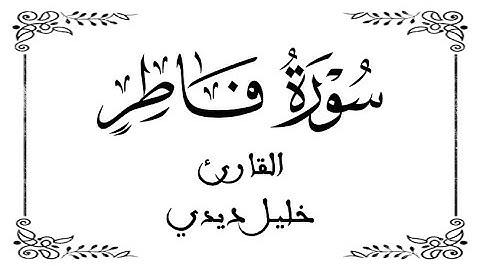 سُوْرَةُ فَاطِرٍ
القارئ
خليل ديدي